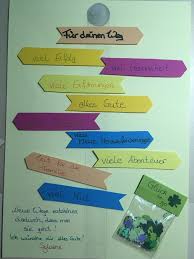 Für deinen Weg
viel Erfolg
viel Gesundheit
viele Erfahrungen
alles Gute
viele
neue Herausforderungen
Zeit für die
Familie
viele Abenteuer
viel Mut
Glück
Neue Wege entstehen
dadurch, dass man
sie geht!
Ich wünsche dir alles Gute!